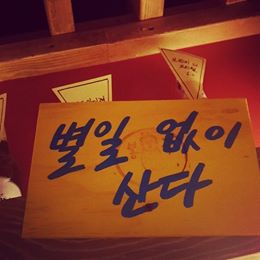 별일 없이
산다